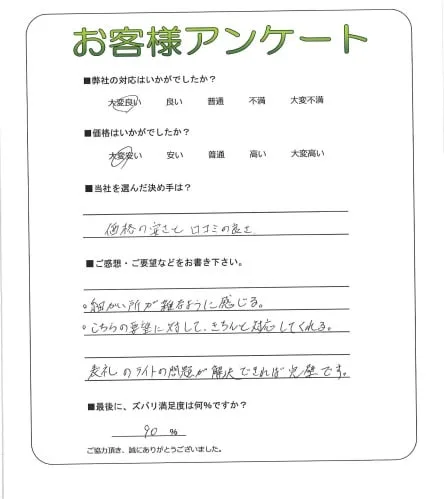 お客様アンケート
■弊社の対応はいかがでしたか?
大変良い 良い 普通 不満 大変不満
■価格はいかがでしたか?
大変安い 安い 普通 高い 大変高い
■当社を選んだ決め手は?
価格の安さと口コミの良さ
■ご感想・ご要望などをお書き下さい。
。細かい所が雑なように感じる。
。こちらの要望に対して、きちんと対応してくれる。
表札のライトの問題が解決できれば完璧です。
■最後に、ズバリ満足度は何%ですか?
90 %
ご協力頂き、誠にありがとうございました。